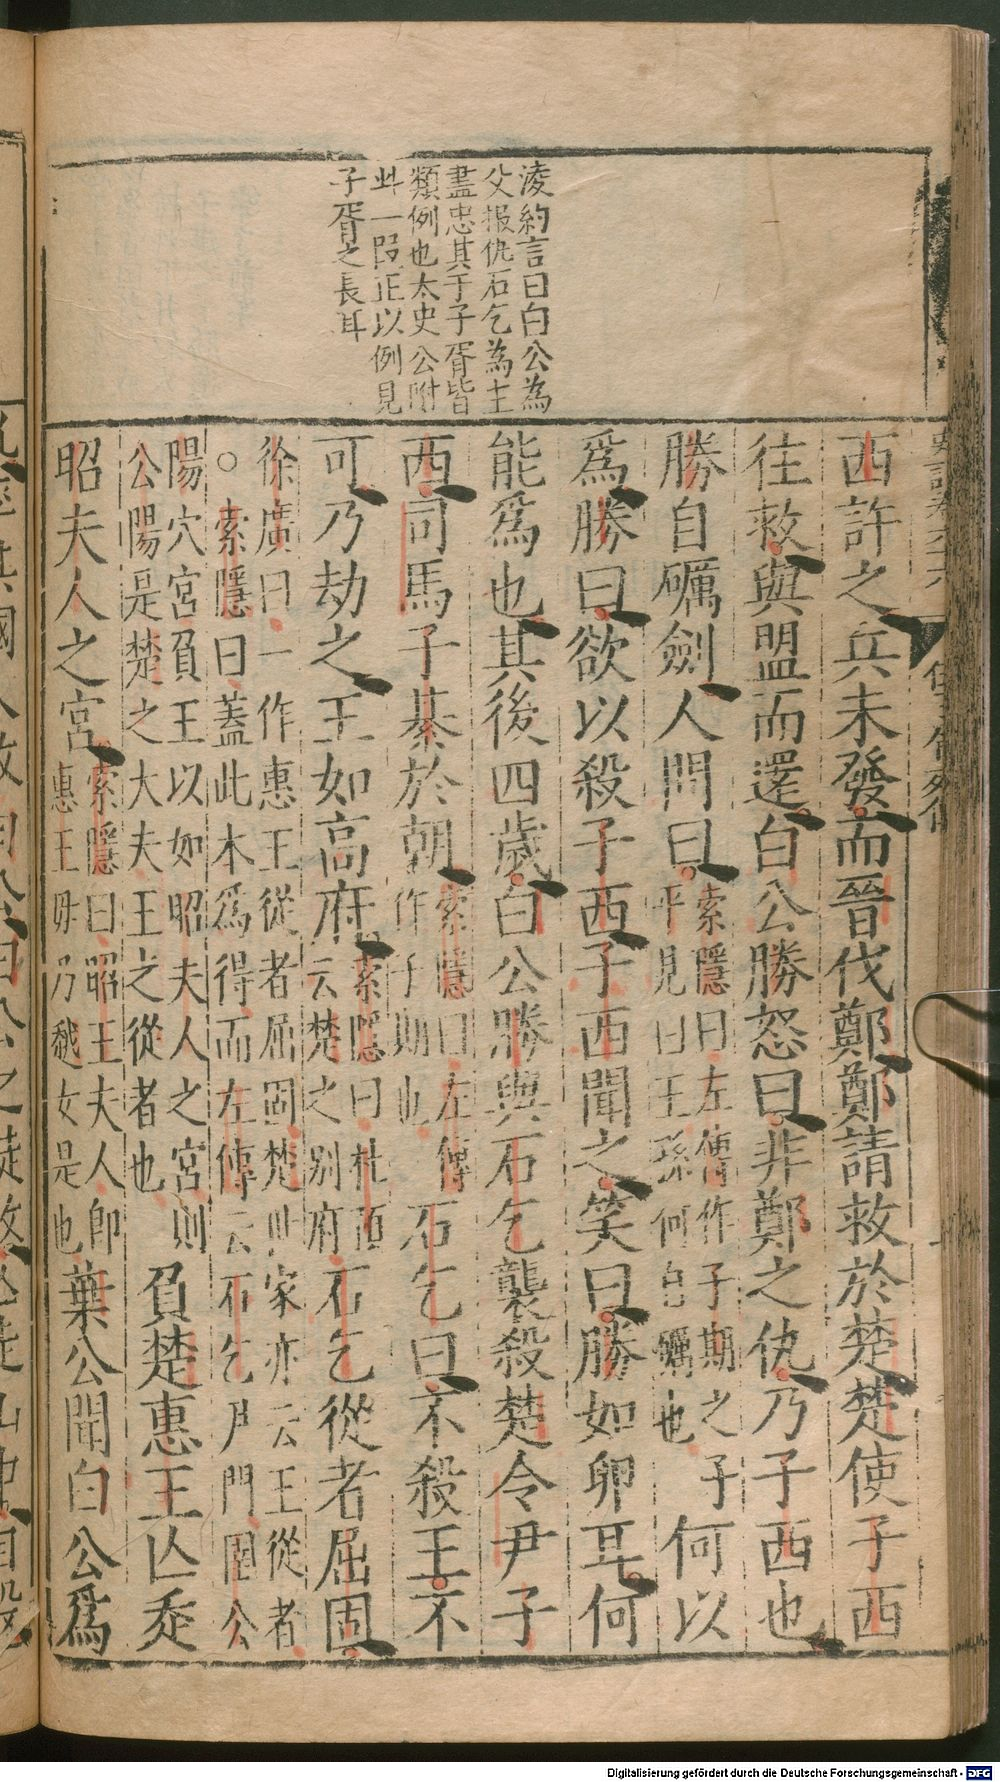 凌約言曰白公為
父報仇石乞為主
盡忠其于子胥皆
類例也太史公附
此一段正以例見
子胥之長耳
西許之兵未發而晉伐鄭鄭請救於楚楚使子西
往救與盟而還白公勝怒曰非鄭之仇乃子西也
勝自礪劍人問曰
索隱曰左傳作子期之子
平見曰王孫何自礪也
何以
為勝曰欲以殺子西子西聞之笑曰勝如卵耳何
能為也其後四歲白公勝與石乞襲殺楚令尹子
西司馬子綦於朝
索隱曰左傳
作子期也
石乞曰不殺王不
可乃劫之王如高府
索隱曰杜預
云楚之別府
石乞從者屈固
徐廣曰一作惠王從者屈固楚世家亦云王從者
○索隱曰蓋此本為得而左傳云石乞尹門圉公
陽穴宮負王以如昭夫人之宮則
公陽是楚之大夫王之從者也
負楚惠王亾奔
昭夫人之宮
索隱曰昭王夫人即
惠王母乃越女是也
葉公聞白公為
Digitalisierung gefördert durch die Deutsche Forschungsgemeinschaft - DFG